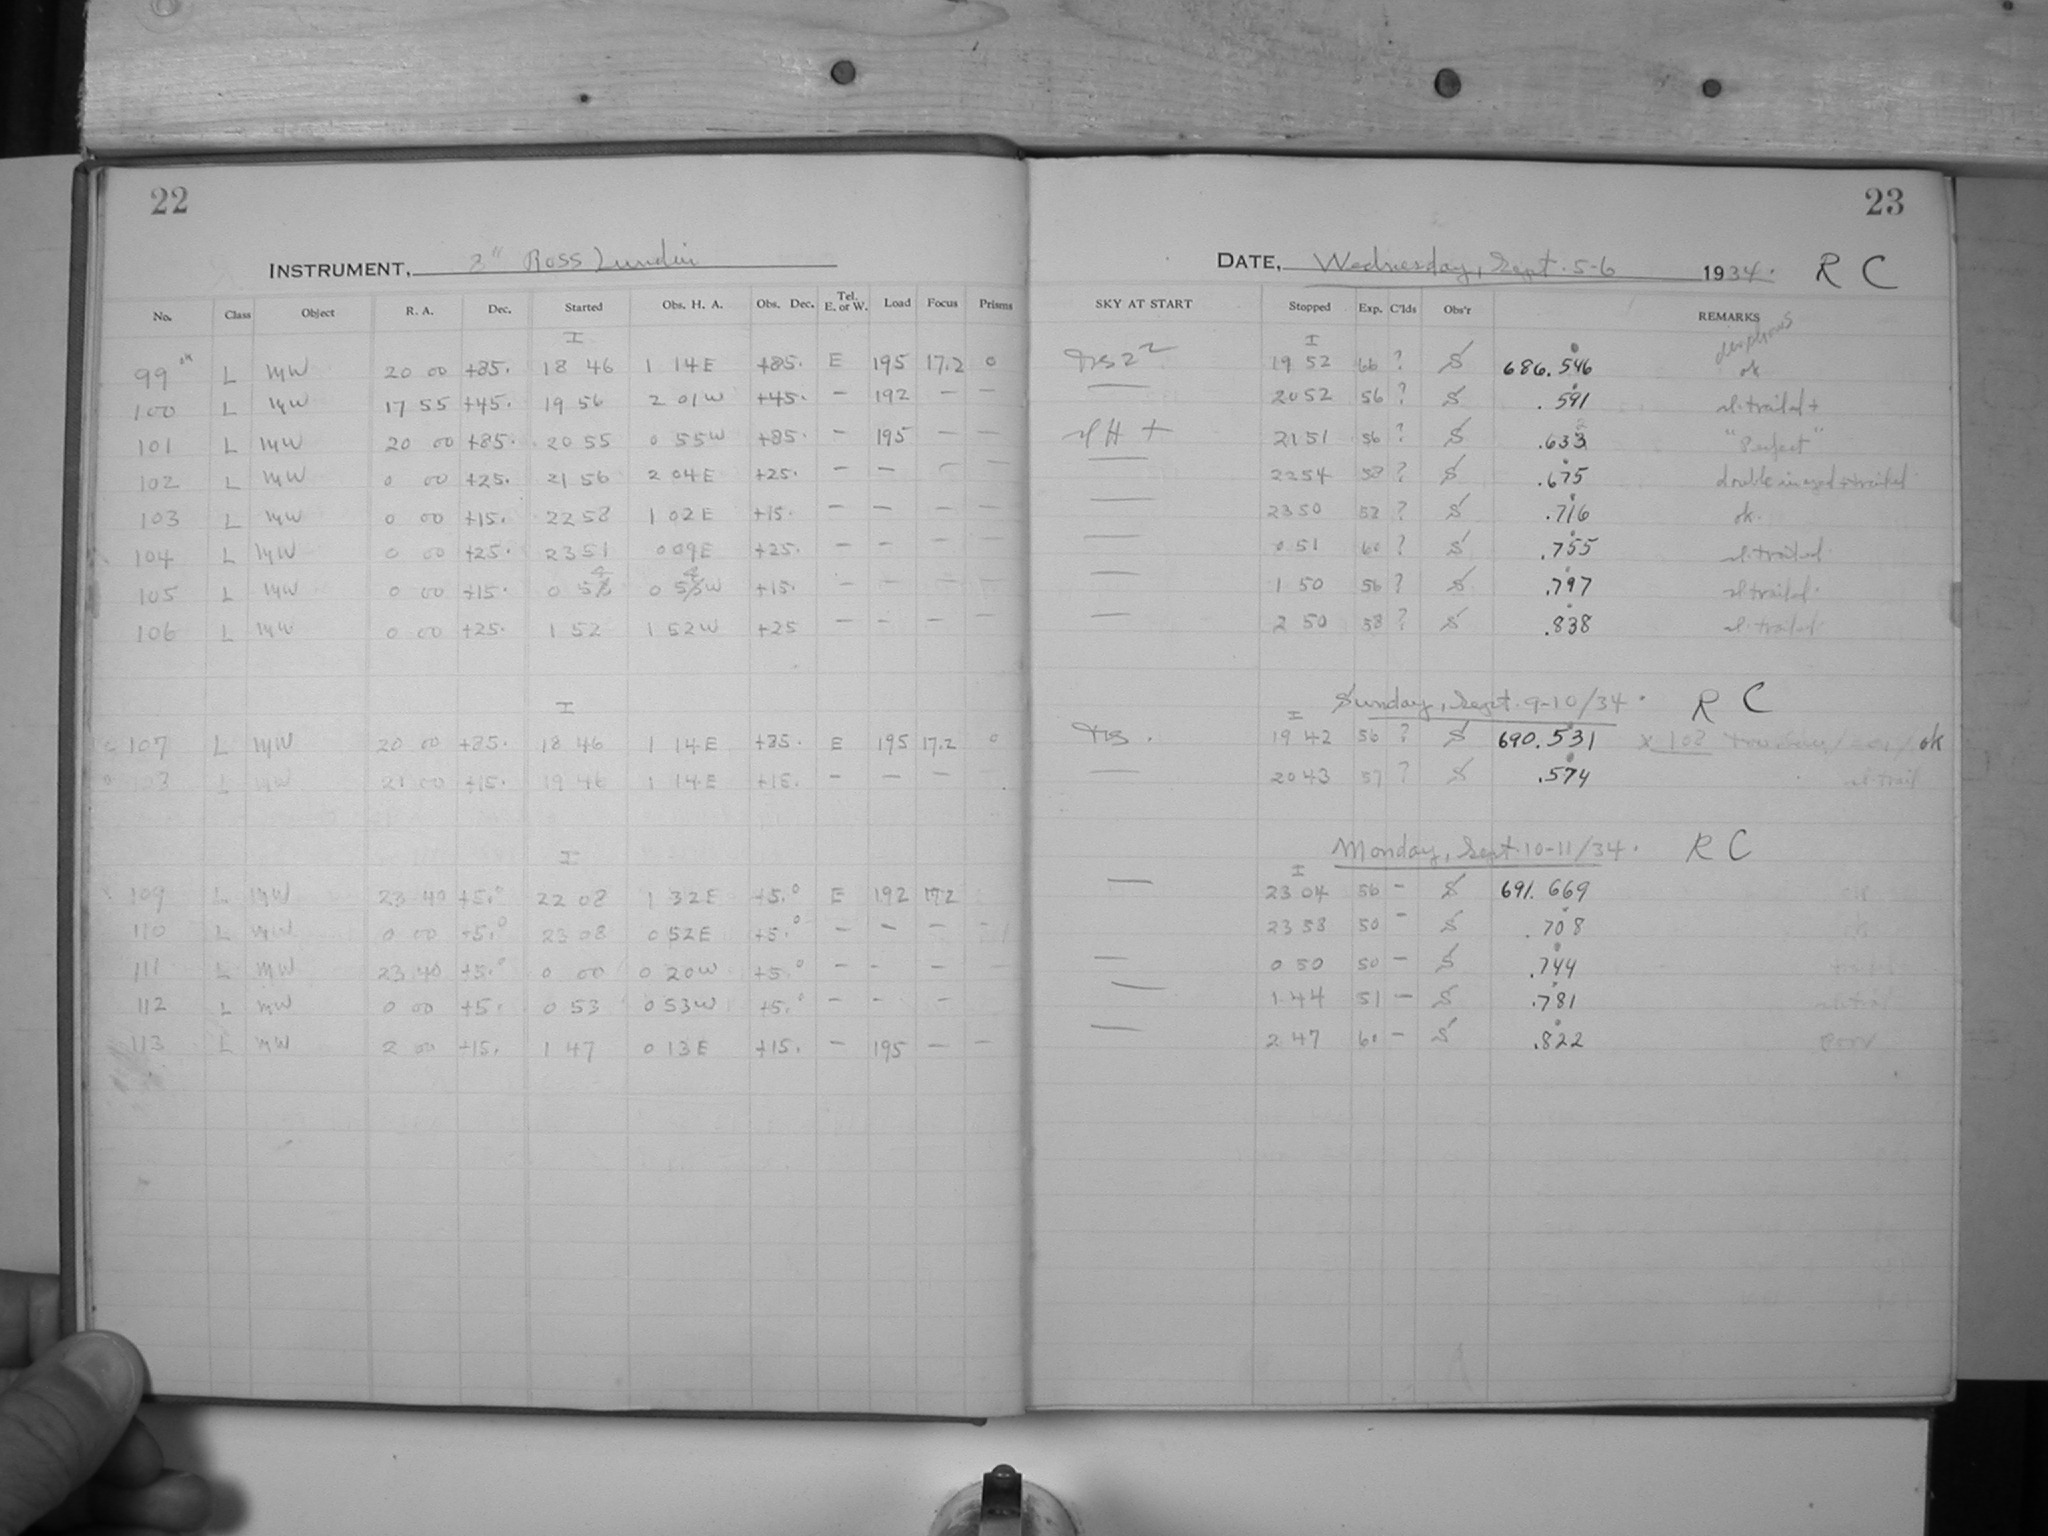 22
INSTRUMENT, 3" Ross Lundin
No. Class Object R. A. Dec. Started Obs. H. A. Obs. Dec. Tel. E. or W. Load Focus Prisms
I
99 ok L MW 20 00 +35. 18 46 1 14E +35. E 195 17.2 0
100 L MW 17 55 +45. 19 56 2 01W +45. — 192 — —
101 L MW 20 00 +35. 20 55 0 55W +35. — 195 — —
102 L MW 0 00 +25. 21 56 2 04E +25. — — — —
103 L MW 0 00 +15. 22 58 1 02E +15. — — — —
104 L MW 0 00 +25. 23 51 0 09E +25. — — — —
105 L MW 0 00 +15. 0 54 0 54W +15. — — — —
106 L MW 0 00 +25. 1 52 1 52W +25 — — — —
I
107 L MW 20 00 +35. 18 46 1 14E +35. E 195 17.2 0
L MW 21 00 +15. 19 46 1 14E +15. — — — —
I
109 L MW 23 40 +5.° 22 08 1 32E +5.° E 192 17.2
110 L MW 0 00 +5.° 23 08 0 52E +5.° — — — —
111 L MW 23 40 +5.° 0 00 0 20W +5.° — — — —
112 L MW 0 00 +5. 0 53 0 53W +5.° — — —
113 L MW 2 00 +15. 1 47 0 13E +15. — 195 — —
23
DATE, Wednesday, Sept. 5-6 1934. R C
SKY AT START Stopped Exp. C'lds Obs'r REMARKS
I
19 52 66 ? S 686.546 ok
— 20 52 56 ? S .591 sl. trailed +
sl H + 21 51 56 ? S .633 "Perfect"
— 22 54 58 ? S .675 double imaged + trailed
— 23 50 52 ? S .716 ok.
— 0 51 60 ? S .755 sl. trailed
— 1 50 56 ? S .797 sl trailed.
— 2 50 58 ? S .838 sl. trailed
Sunday, Sept. 9-10/34. R C
I
19 42 56 ? S 690.531 x 108 ok
— 20 43 57 ? S .574 sl trail
Monday, Sept. 10-11/34. R C
I
— 23 04 56 — S 691.669 ok
23 58 50 — S .708 ok
— 0 50 50 — S .744
— 1 44 51 — S .781
— 2 47 60 — S .822 Poor